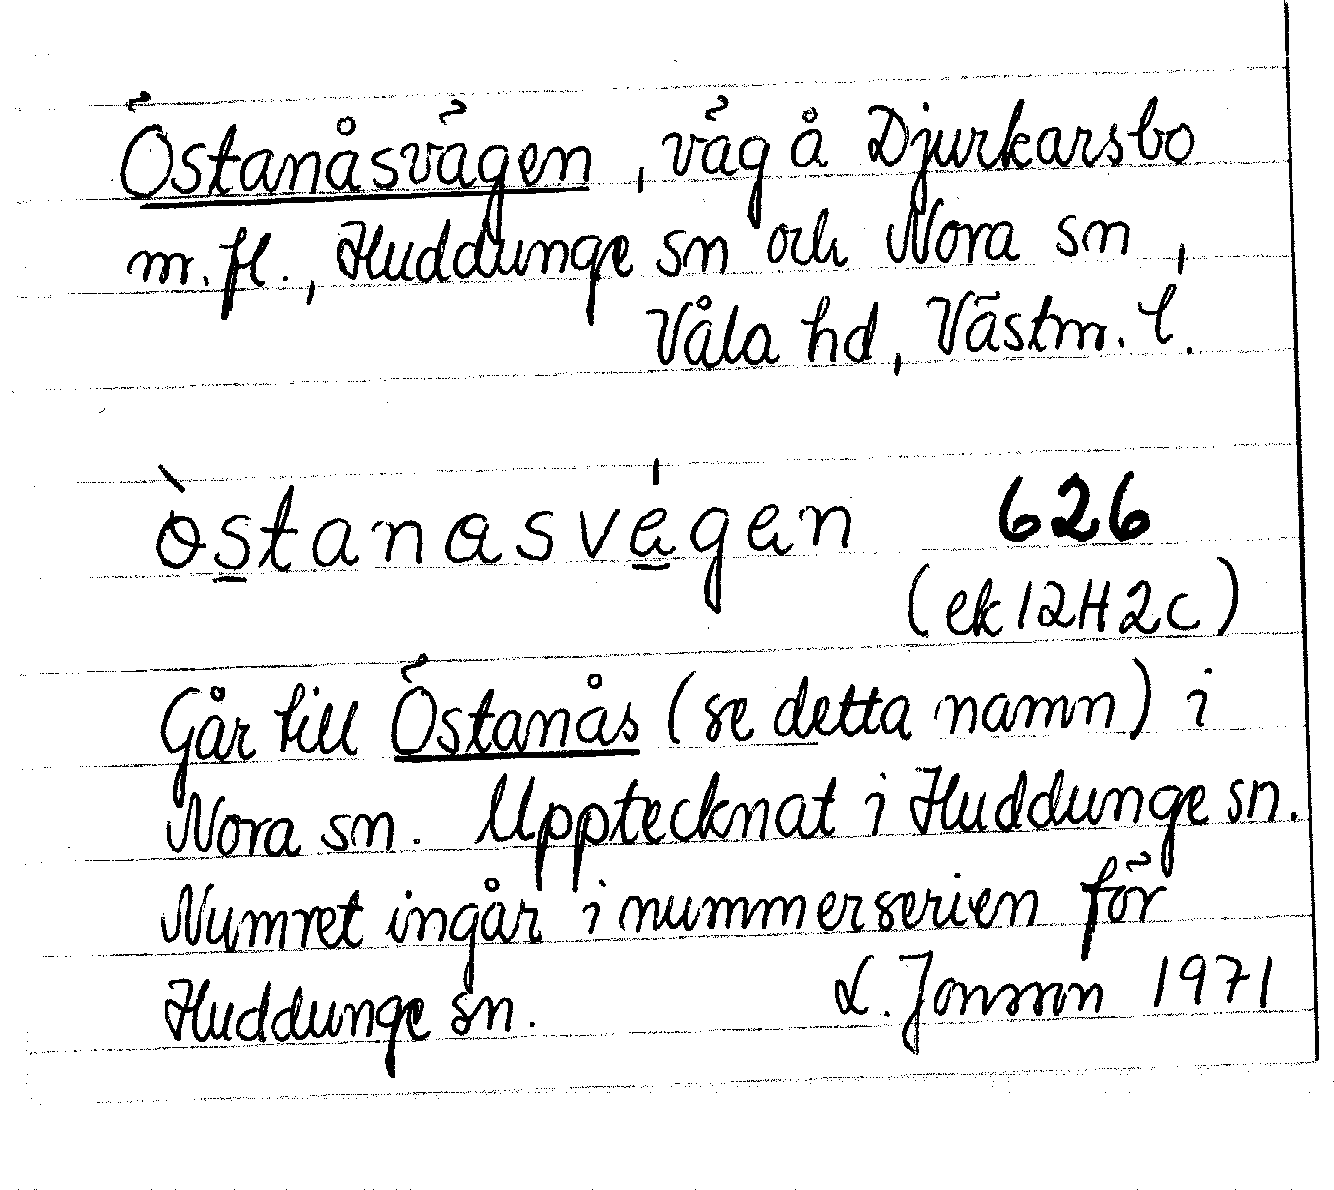 Östanåsvägen, väg å Djurkarsbo
m.fl., Huddunge sn och Nora sn,
Våla hd, Västm. l.
östanasvägen 626
(ek 12H2c)
Går till Östanås (se detta namn) i
Nora sn. Upptecknat i Huddunge sn.
Numret ingår i nummerserien för
Huddunge sn. L. Jonsson 1971